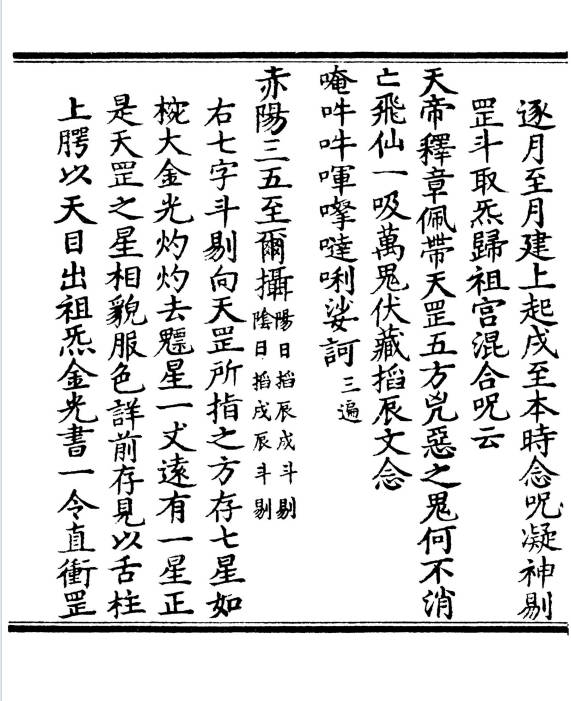 逐月至月建上起戌至本時念呪凝神剔
罡斗取炁歸祖宮混合呪云
天帝釋章佩帶天罡五方兇惡之鬼何不消
亡飛仙一吸萬鬼伏藏搯辰文念
唵吽吽㖶㘑噠唎娑訶三遍
赤陽三五至爾攝陽日搯辰戌斗剔
陰日搯戌辰斗剔
右七字斗剔向天罡所指之方存七星如
椀大金光灼灼去魒星一丈遠有一星正
是天罡之星相貌服色詳前存見以舌柱
上腭以天目出祖炁金光書一令直衝罡